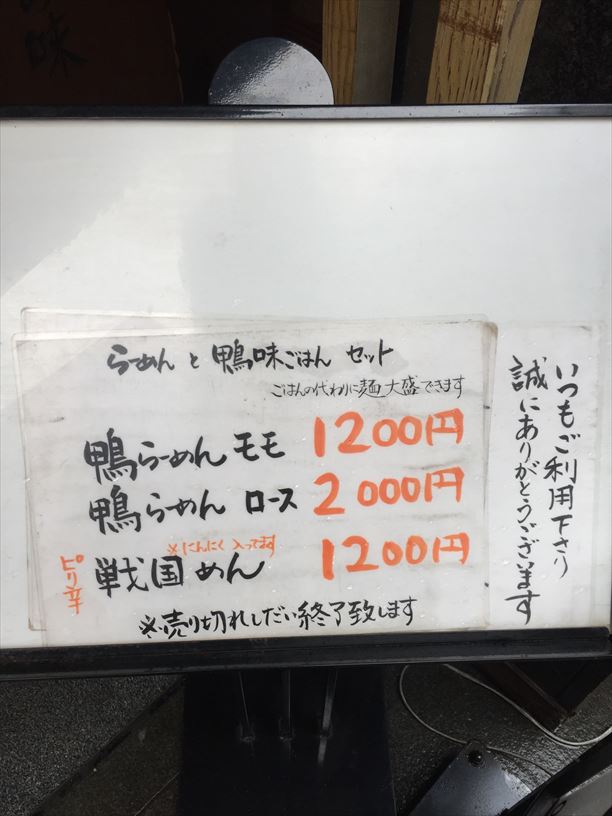 味
らーめんと鴨味ごはん セット
ごはんの代わりに麺大盛できます
鴨らーめん モモ 1200円
鴨らーめん ロース 2000円
※にんにく入ってます
ピリ辛 戦国めん 1200円
※売り切れしだい終了致します
いつもご利用下さり
誠にありがとうございます